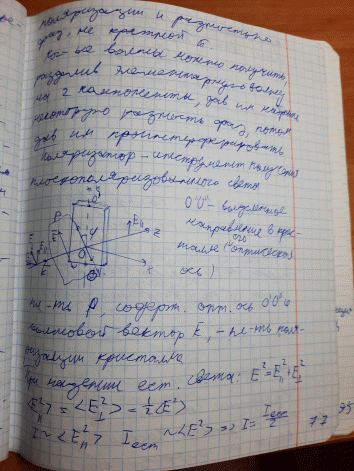 поляризации и разностью
фаз, не кратной π.
волны можно получить,
разделив элементарную волну
на 2 компоненты, дав им
некоторую разность фаз, потом
дав им проинтерферировать
Поляризатор – инструмент получения
плоскополяризованного света
O'O" – выделенное
направление в крис-
талле ("оптическая
ось)
пл-ть P, содерж. опт. ось O'O" и
волновой вектор k, – пл-ть поля-
ризации кристалла
При падении ест. света: E² = E²ₙ + E²⊥
<E²ₙ> = <E²⊥> = ½<E²>
I ~ <E²ₙ> I ест ~ <E²> => I = I ест / 2